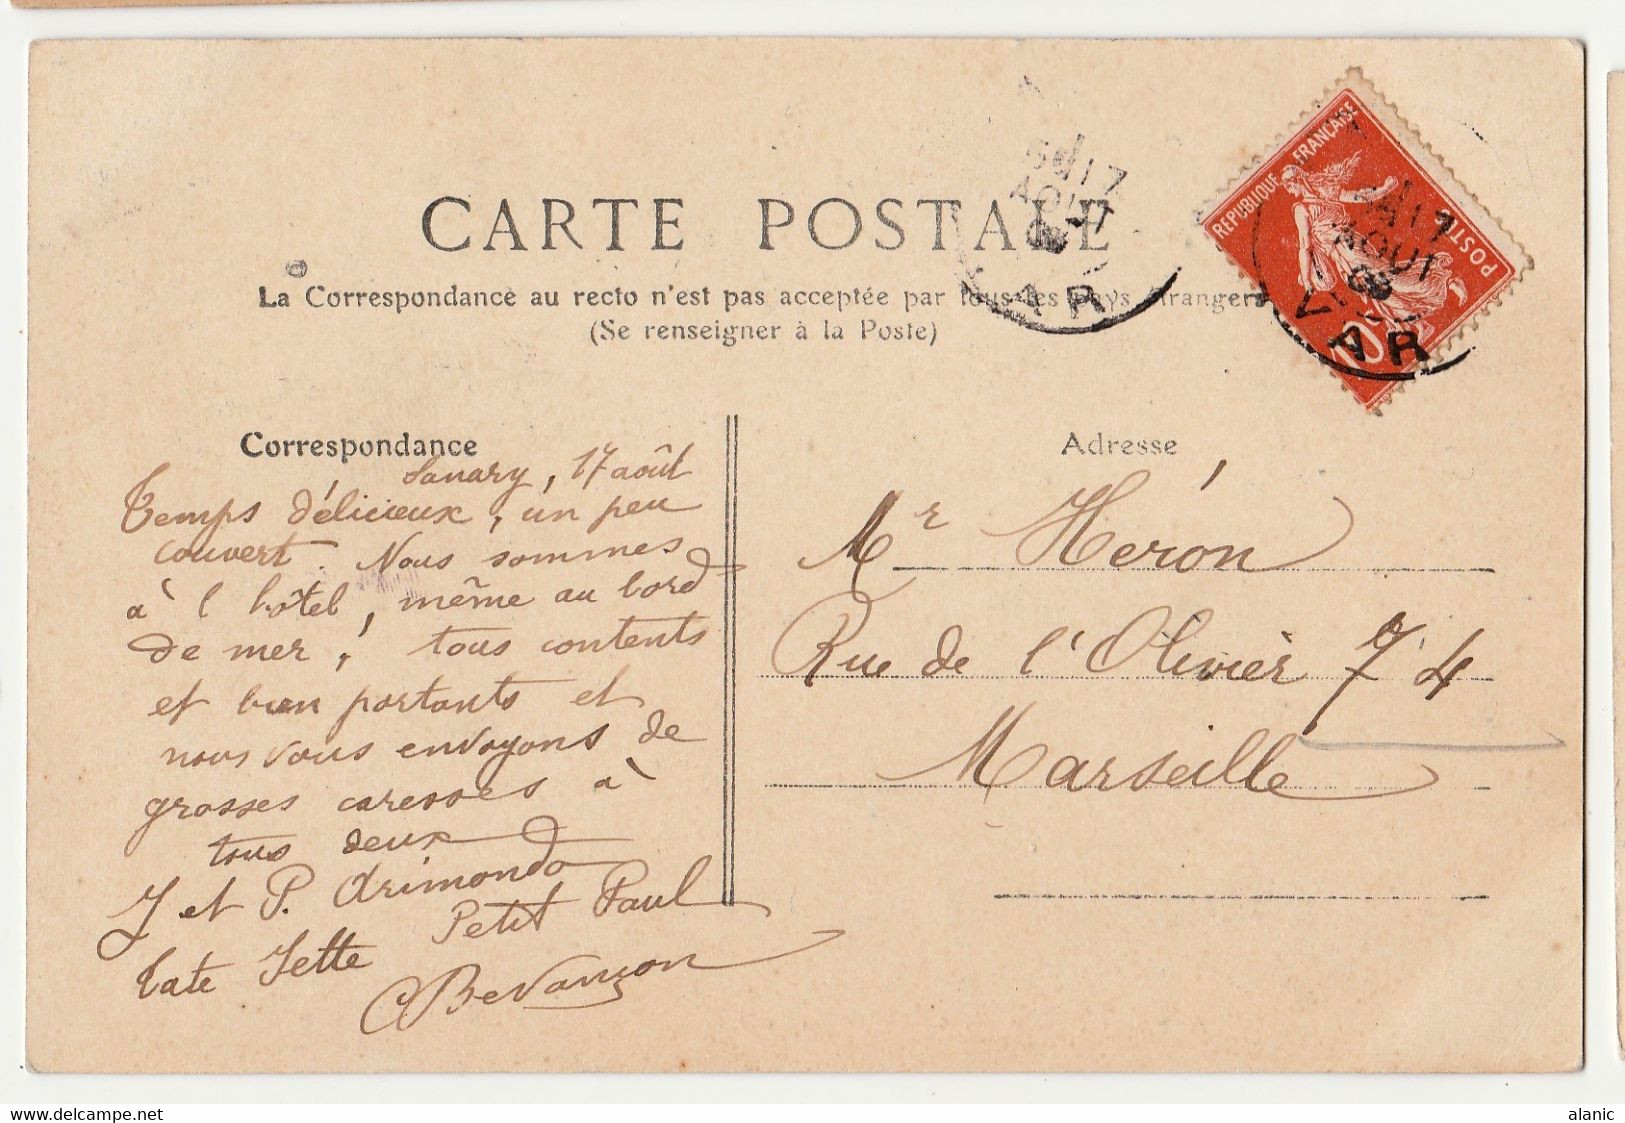 CARTE POSTALE
La Correspondance au recto n'est pas acceptée par tous les pays étrangers
(Se renseigner à la Poste)
17
AOUT
09
VAR
REPUBLIQUE FRANÇAISE
POSTES
10
17
AOUT
VAR
Correspondance
Sanary, 17 août
Temps délicieux, un peu
couvert. Nous sommes
à l'hôtel, même au bord
de mer, tous contents
et bien portants et
nous vous envoyons de
grosses caresses à
tous deux
J et P. Arimondo
Tate Jette Petit Paul
Adresse
Mr Héron
Rue de l'Olivier 74
Marseille
https://www.delcampe.net
alanic